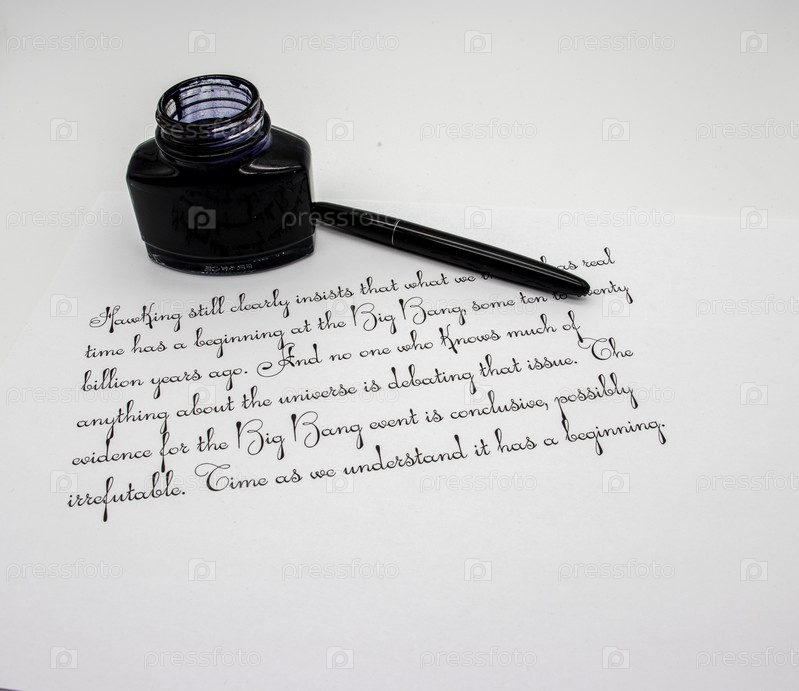 Hawking still clearly insists that what we as real
time has a beginning at the Big Bang, some ten to twenty
billion years ago. And no one who knows much of
anything about the universe is debating that issue. The
evidence for the Big Bang event is conclusive, possibly
irrefutable. Time as we understand it has a beginning.